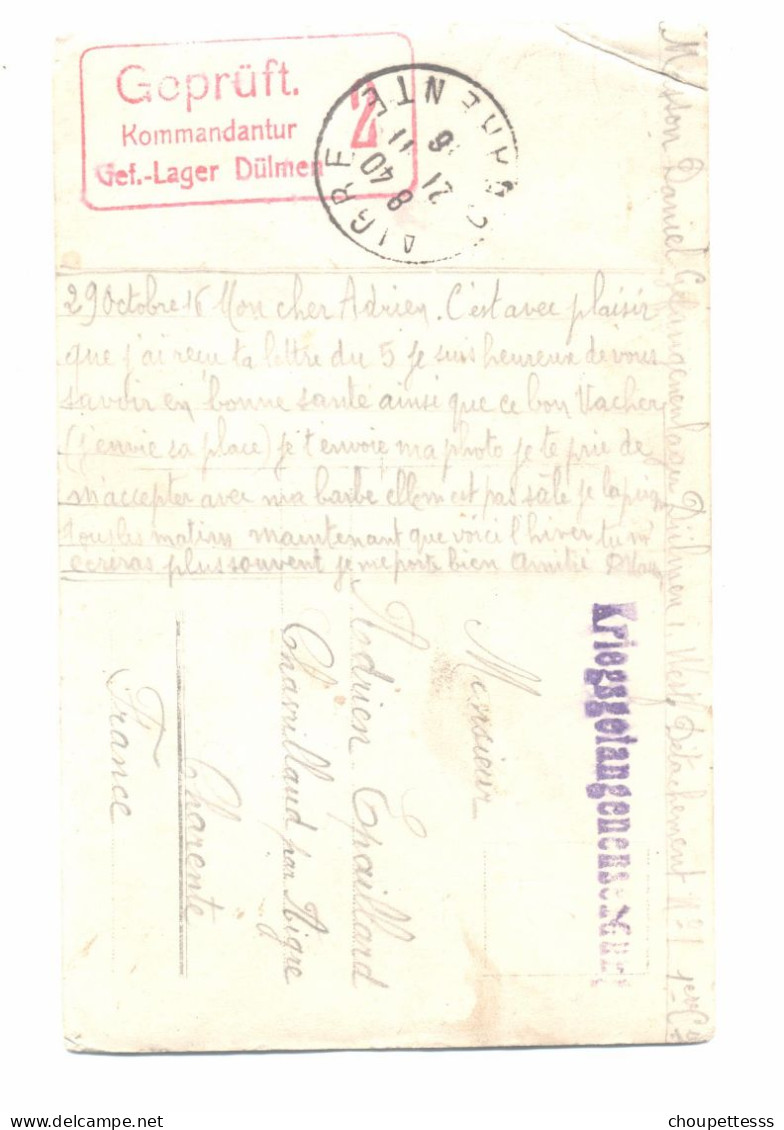 Geprüft.
Kommandantur
Gef.-Lager Dülmen
2
AIGRE
CHARENTE
8 40
21 11
6
29 Octobre 16 Mon cher Adrien. C'est avec plaisir
que j'ai reçu ta lettre du 5 Je suis heureux de vous
savoir en bonne santé ainsi que ce bon Vacher
(j'envie sa place) je t'envoie ma photo je te prie de
m'accepter avec ma barbe elle n'est pas sale je la peigne
tous les matins maintenant que voici l'hiver tu m'
écriras plus souvent je me porte bien Amitié
Masson Daniel Gefangenenlager Dülmen i. West. Détachement N° 1 1ère Cie
Kriegsgefangenensendung
Monsieur
Adrien Epaillard
Chavillaud par Aigre
Charente
France
choupettesss